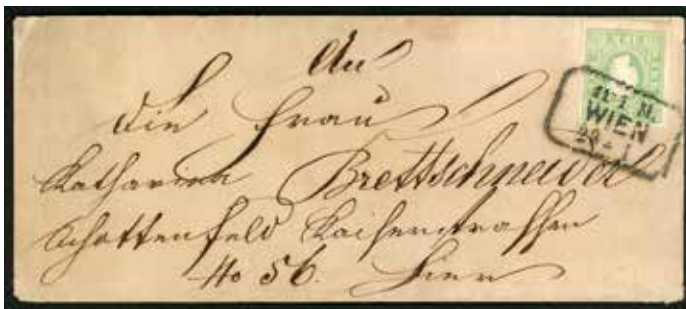 An
die Frau
Katharina Brettschneider
Schottenfeld Kaiserstrassen
No 56. hier
WIEN